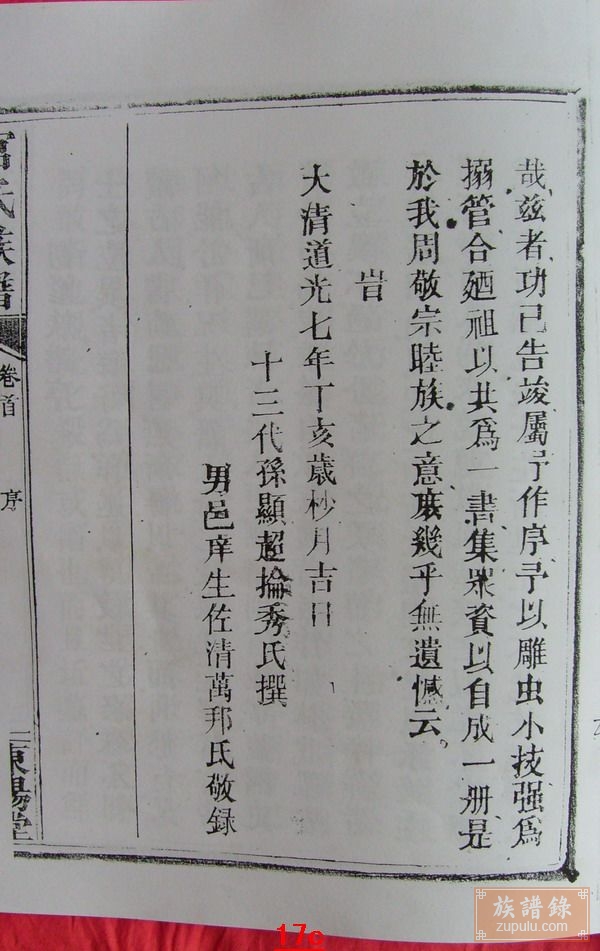 哉兹者功已告竣屬予作序予以雕虫小技强爲
搦管合廼祖以共爲一書集眾資以自成一册是
於我周敬宗睦族之意庻幾乎無遺憾云
旹
大清道光七年丁亥歳杪月吉日
十三代孫顯超掄秀氏撰
男邑庠生佐清萬邦氏敬録
氏族譜
卷首
序
東陽堂
族譜錄
zupulu.com
17o